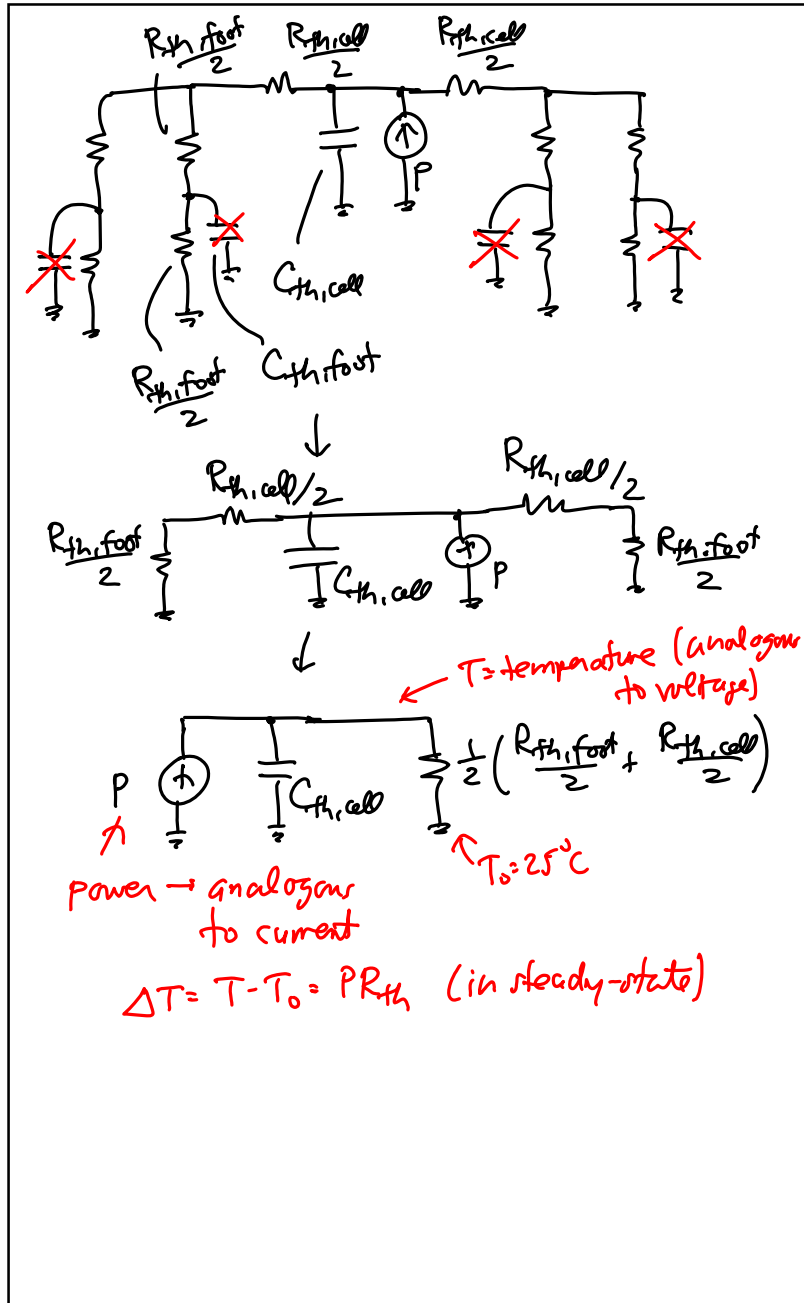 R_th,foot/2 R_th,cell/2 R_th,cell/2
P
C_th,cell
R_th,foot/2 C_th,foot
↓
R_th,cell/2 R_th,cell/2
R_th,foot/2 C_th,cell P R_th,foot/2
↓
T=temperature (analogous
to voltage)
P C_th,cell 1/2 (R_th,foot/2 + R_th,cell/2)
T₀=25°C
power → analogous
to current
ΔT = T-T₀ = PR_th (in steady-state)